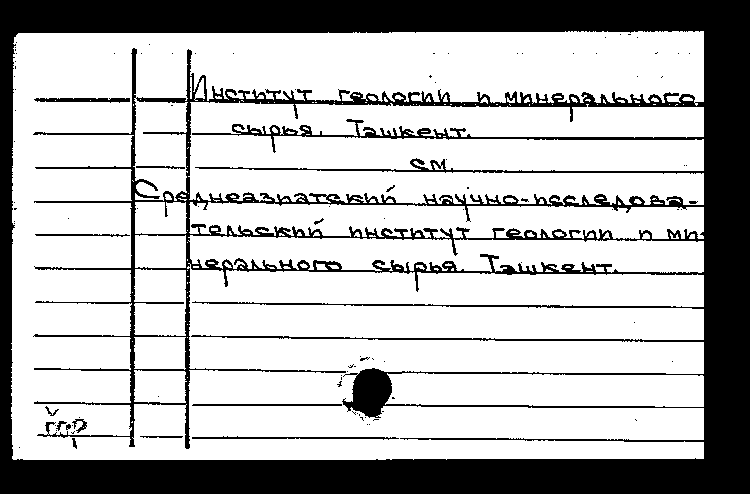 Институт геологии и минерального
сырья. Ташкент.
см.
Среднеазиатский научно-исследова-
тельский институт геологии и ми-
нерального сырья. Ташкент.